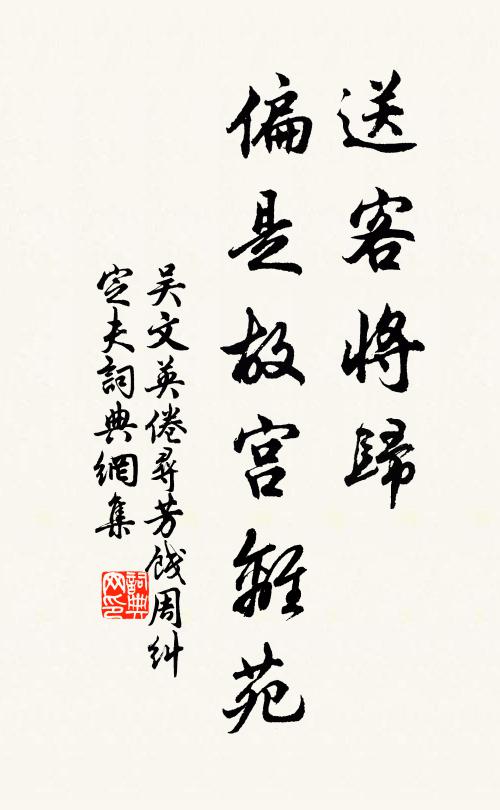 送客將歸
偏是故宮離苑
吳文英倦尋芳餞周糾
定夫詞典網集
詞典
网印